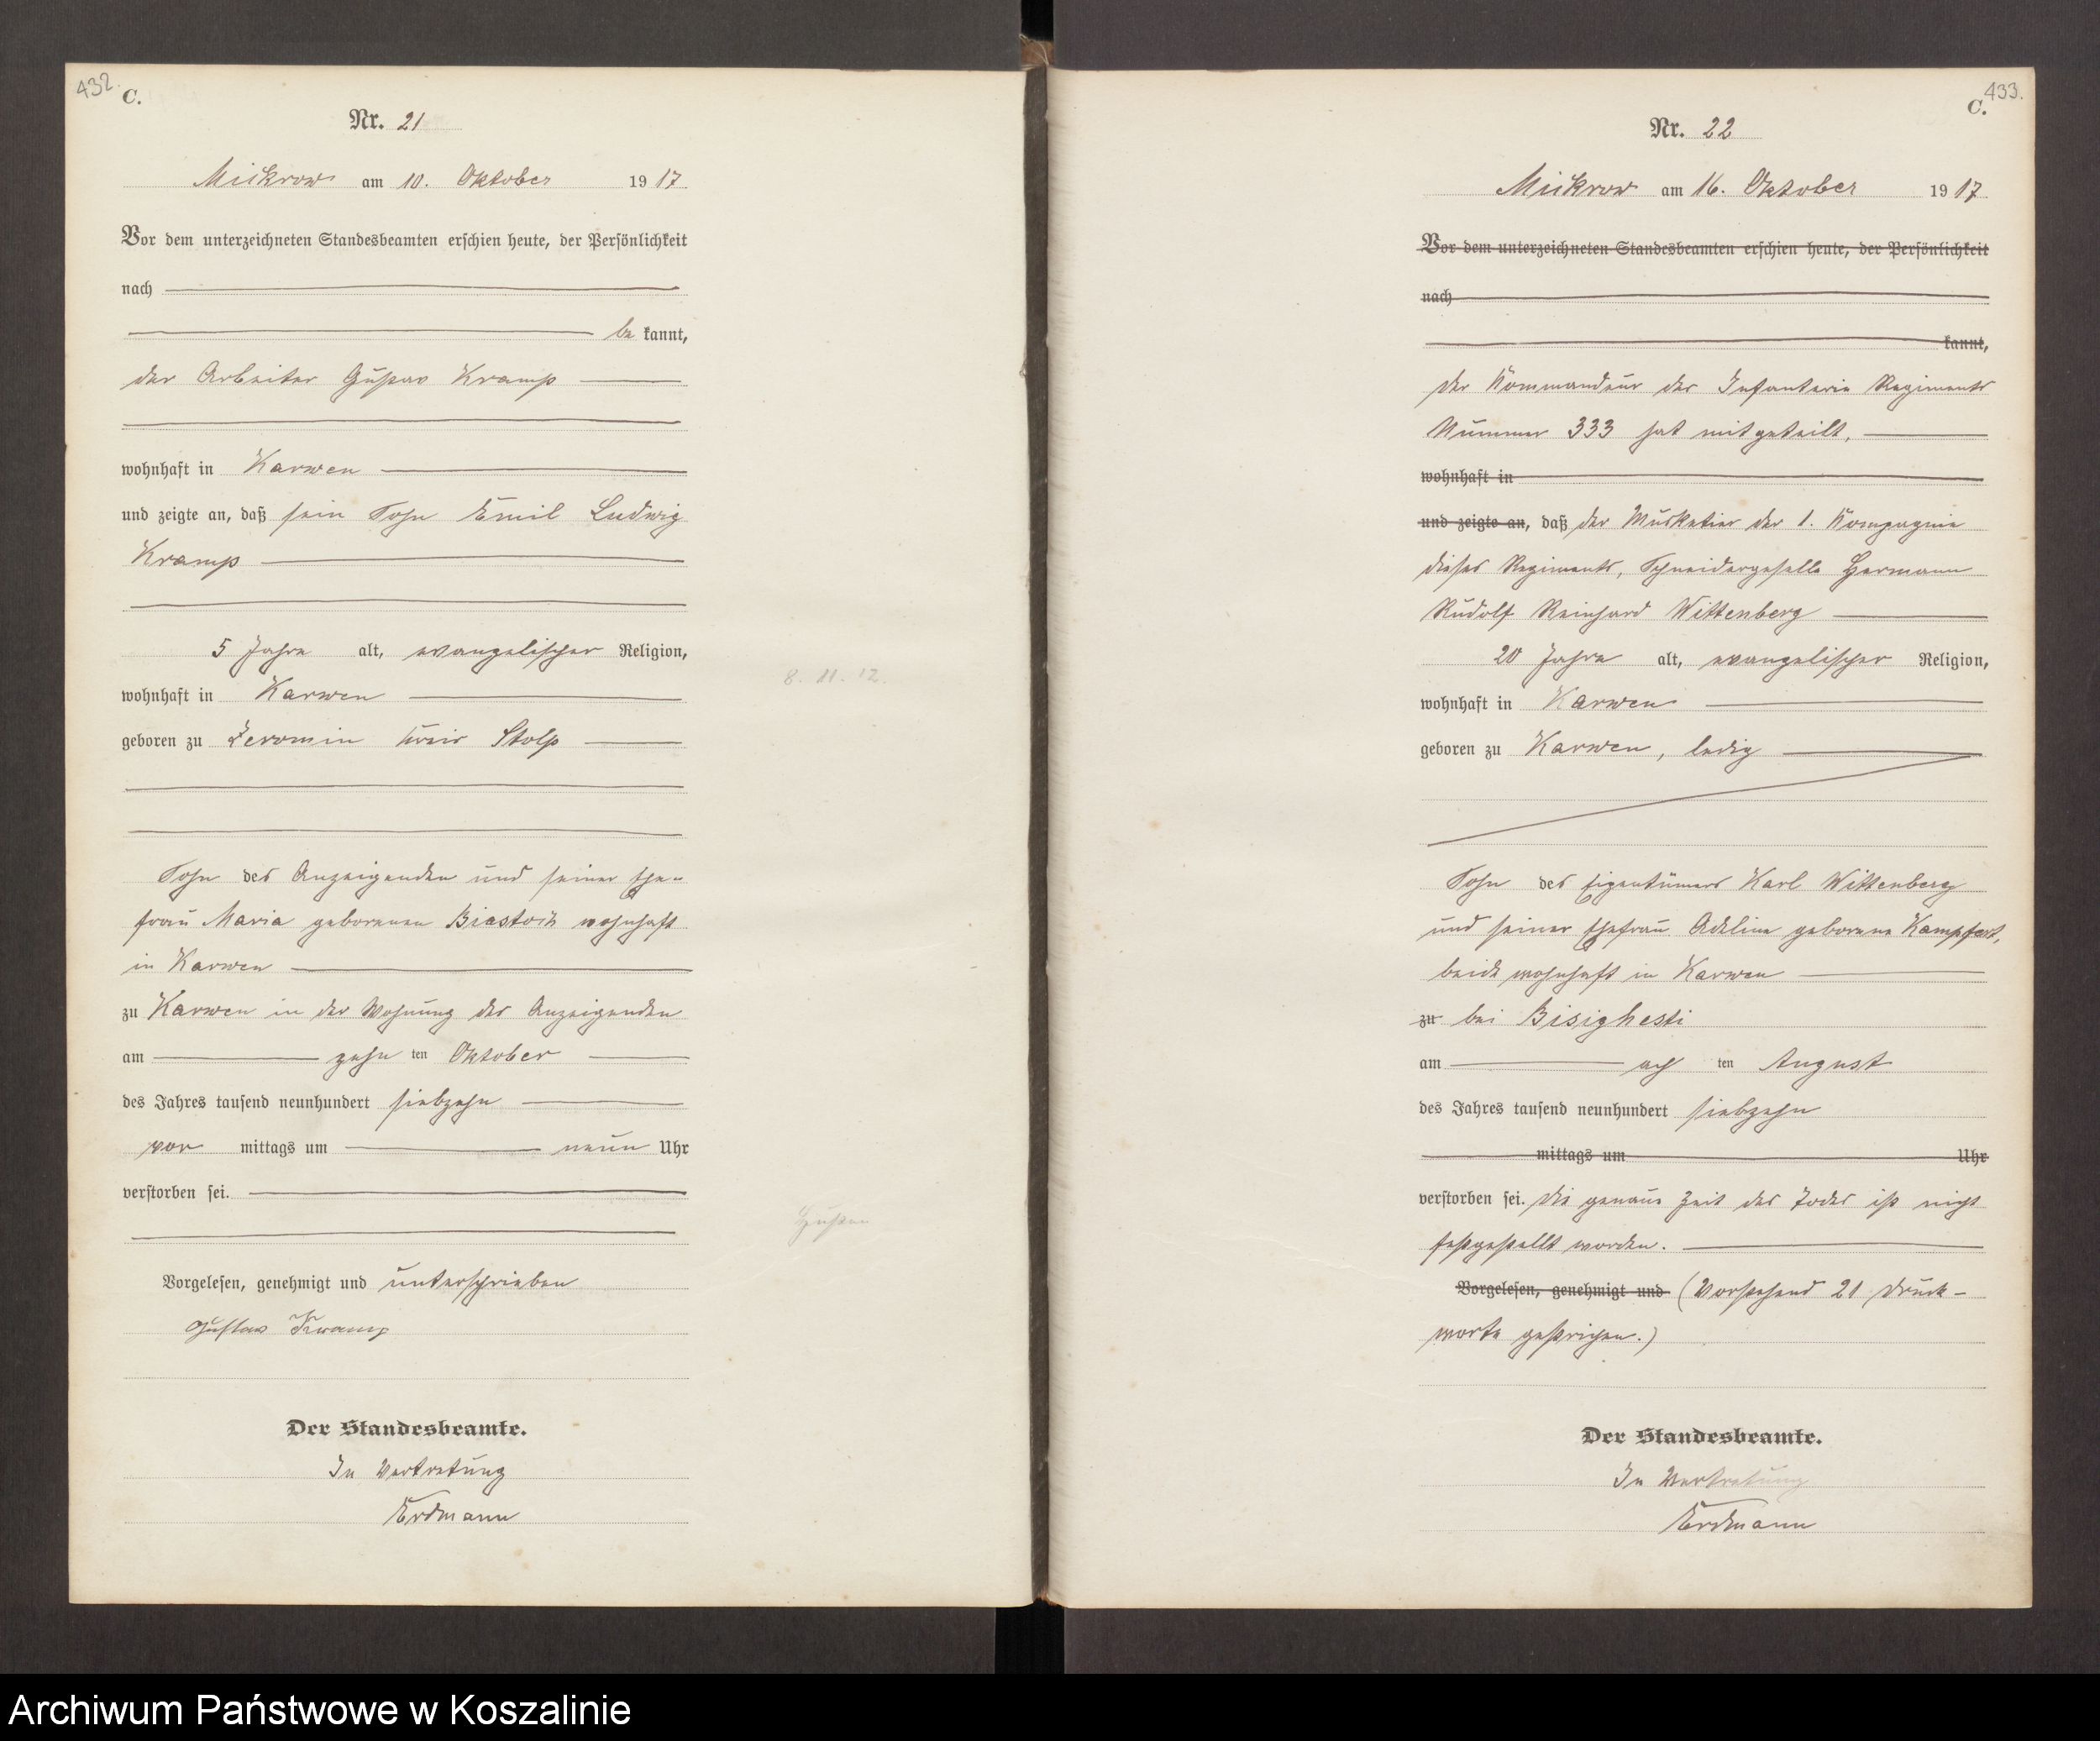 432.
C.
Nr. 21
Mickrow am 10. Oktober 1917
Vor dem unterzeichneten Standesbeamten erschien heute, der Persönlichkeit
nach
be kannt,
der Arbeiter Gustav Kramp
wohnhaft in Karwen
und zeigte an, daß sein Sohn Emil Ludwig
Kramp
5 Jahre alt, evangelischer Religion,
wohnhaft in Karwen
geboren zu Zeromin Kreis Stolp
Sohn des Anzeigenden und seiner Ehe-
frau Maria geborenen Biastoch wohnhaft
in Karwen
zu Karwen in der Wohnung des Anzeigenden
am zehn ten Oktober
des Jahres tausend neunhundert siebzehn
vor mittags um neun Uhr
verstorben sei.
Vorgelesen, genehmigt und unterschrieben
Gustav Kramp
Der Standesbeamte.
In Vertretung
Erdmann
8. 11. 12.
433.
C.
Nr. 22
Mickrow am 16. Oktober 1917
Vor dem unterzeichneten Standesbeamten erschien heute, der Persönlichkeit
nach
kannt,
Der Kommandeur des Infanterie Regiments
Nummer 333 hat mitgeteilt,
wohnhaft in
und zeigte an, daß der Musketier der 1. Kompagnie
dieses Regiments, Schneidergeselle Hermann
Rudolf Reinhard Wittenberg
20 Jahre alt, evangelischer Religion,
wohnhaft in Karwen
geboren zu Karwen, ledig
Sohn des Eigentümers Karl Wittenberg
und seiner Ehefrau Adeline geborene Kampfert,
beide wohnhaft in Karwen
zu bei Bisighesti
am ach ten August
des Jahres tausend neunhundert siebzehn
mittags um Uhr
verstorben sei. Die genaue Zeit des Todes ist nicht
festgestellt worden.
Vorgelesen, genehmigt und (Vorstehend 21 Druck-
worte gestrichen.)
Der Standesbeamte.
In Vertretung
Erdmann
Archiwum Państwowe w Koszalinie